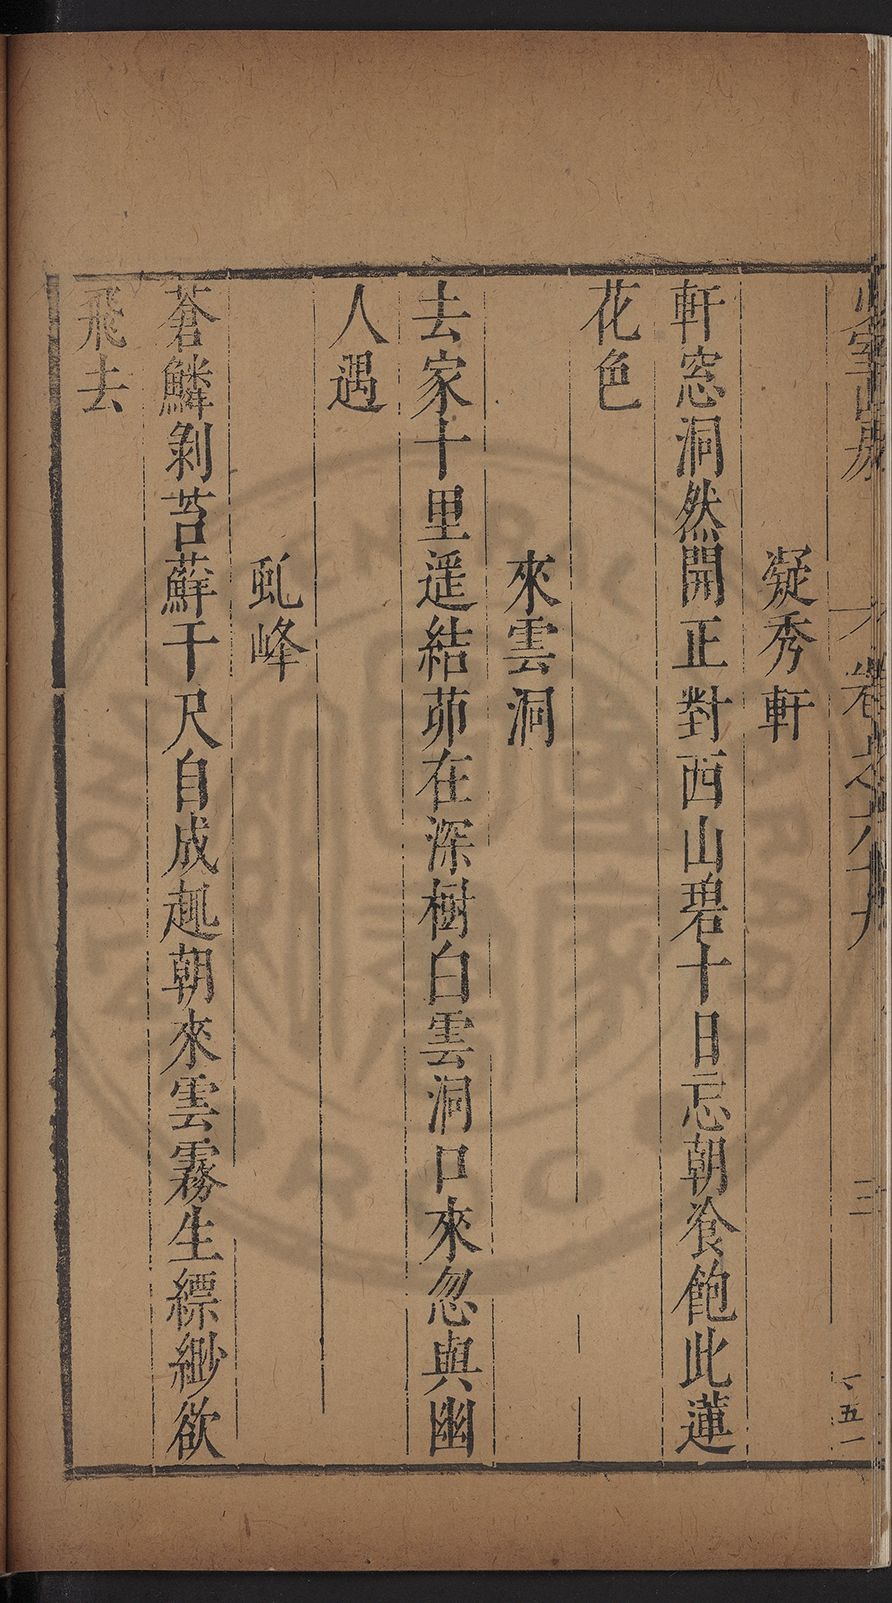 卷之六十九
三
凝秀軒
軒窓洞然開正對西山碧十日忘朝飡飽此蓮
花色
來雲洞
去家十里遥結茆在深樹白雲洞口來忽與幽
人遇
虬峰
蒼鱗剝苔蘚千尺自成趣朝來雲霧生縹緲欲
飛去